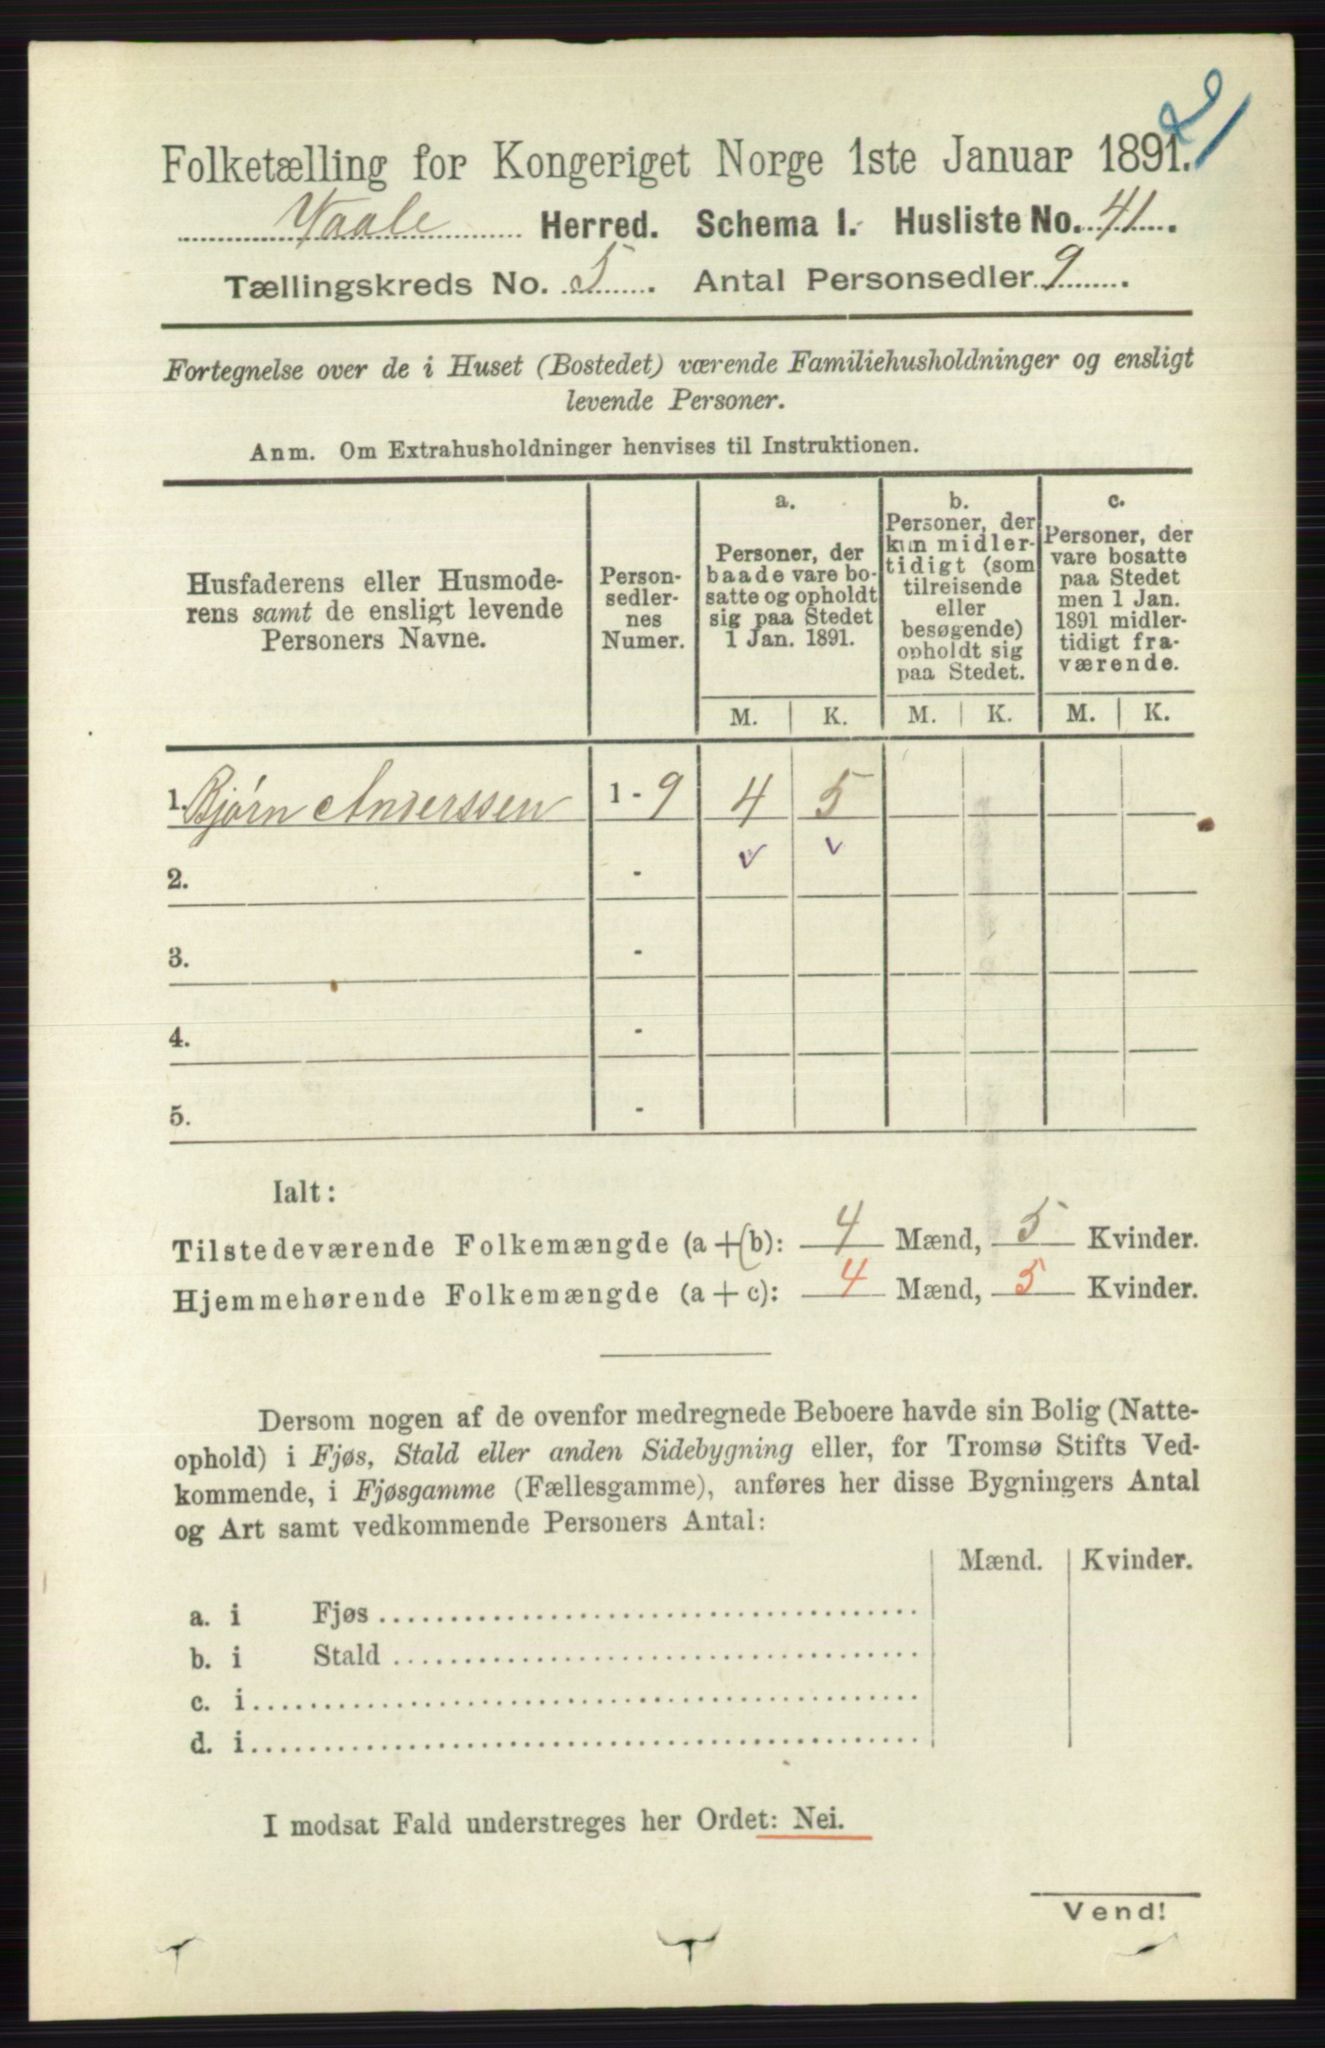 21
Folketælling for Kongeriget Norge 1ste Januar 1891.
Vaale Herred. Schema I. Husliste No. 41.
Tællingskreds No. 5. Antal Personsedler 9.
Fortegnelse over de i Huset (Bostedet) værende Familiehusholdninger og ensligt
levende Personer.
Anm. Om Extrahusholdninger henvises til Instruktionen.
Husfaderens eller Husmode-
rens samt de ensligt levende
Personers Navne.
Person-
sedler-
nes
Numer.
a.
Personer, der
baade vare bo-
satte og opholdt
sig paa Stedet
1 Jan. 1891.
b.
Personer, der
kun midler-
tidigt (som
tilreisende
eller
besøgende)
opholdt sig
paa Stedet.
c.
Personer, der
vare bosatte
paa Stedet
men 1 Jan.
1891 midler-
tidigt fra-
værende.
M. K. M. K. M. K.
1. Bjørn Anderssen 1 - 9 4 5
2. - v v
3. -
4. -
5. -
Ialt:
Tilstedeværende Folkemængde (a + b): 4 Mænd, 5 Kvinder.
Hjemmehørende Folkemængde (a + c): 4 Mænd, 5 Kvinder.
Dersom nogen af de ovenfor medregnede Beboere havde sin Bolig (Natte-
ophold) i Fjøs, Stald eller anden Sidebygning eller, for Tromsø Stifts Ved-
kommende, i Fjøsgamme (Fællesgamme), anføres her disse Bygningers Antal
og Art samt vedkommende Personers Antal:
Mænd. Kvinder.
a. i Fjøs
b. i Stald
c. i
d. i
I modsat Fald understreges her Ordet: Nei.
Vend!